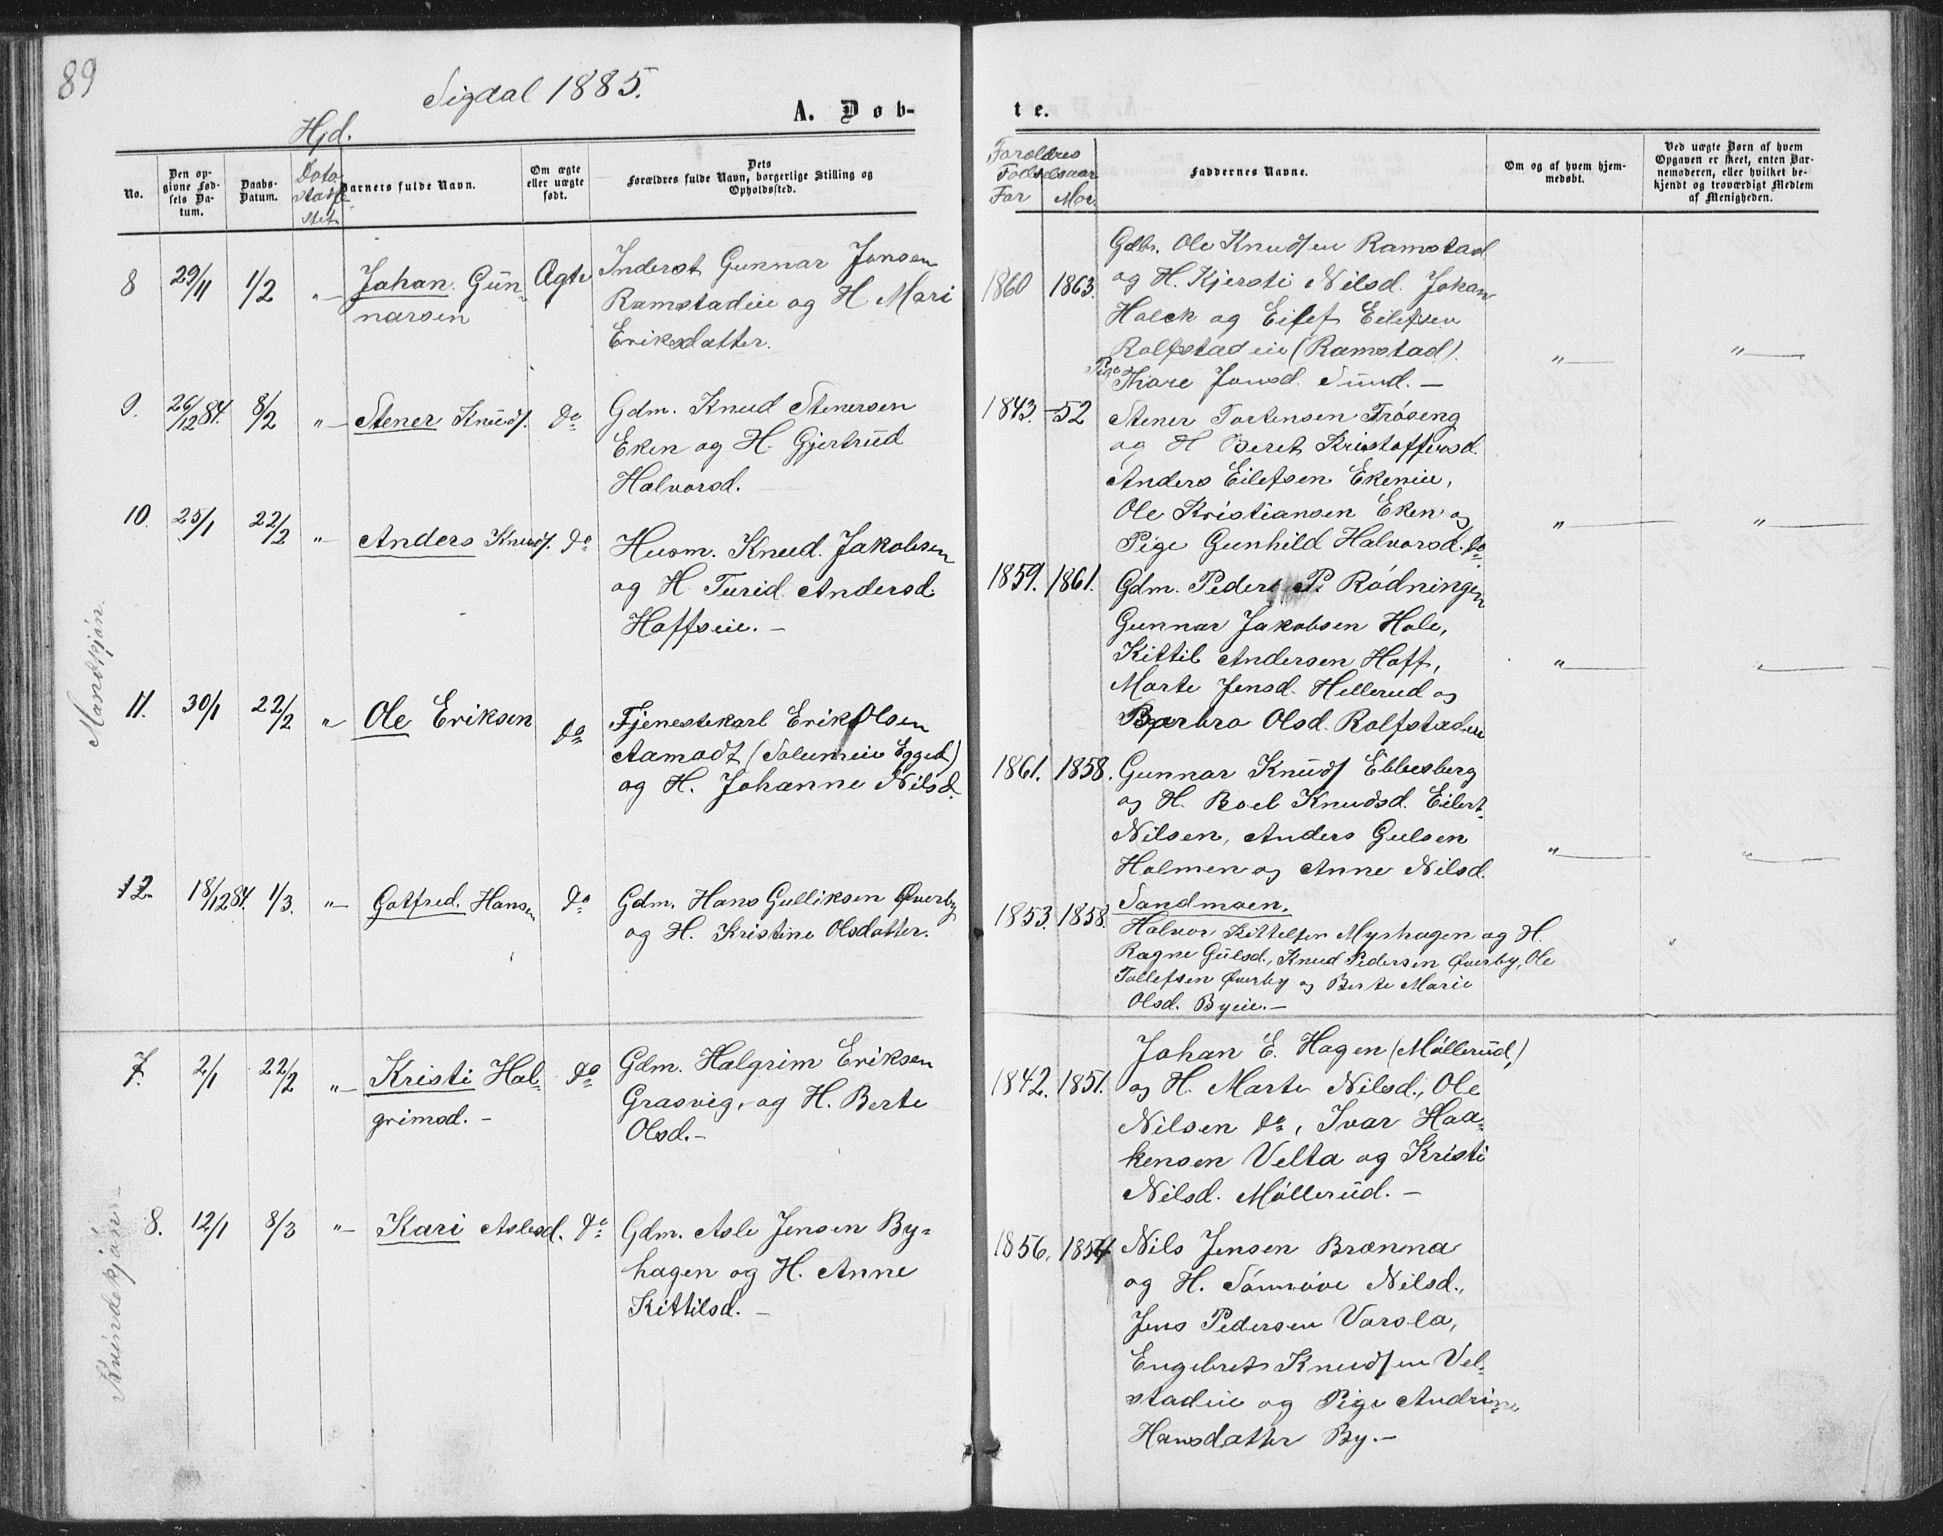 89
Sigdal 1885.
A. Døb-
te.
Hjd.
No.
Den op-
givne Fød-
sels Da-
tum.
Daabs-
Datum.
Dato
stadfæ
stet
Barnets fulde Navn.
Om ægte
eller uægte
født.
Dets
Forældres fulde Navn, borgerlige Stilling og
Opholdssted.
Forældres
Fødselsaar
Far Mor.
Faddernes Navne.
Om og af hvem hjem-
medøbt.
Ved uægte Børn af hvem
Opgaven er skeet, enten Bar-
nemoderen, eller hvilket be-
kjendt og troværdigt Medlem
af Menigheden.
Mandkjøn.
8 29/11 1/2 „— Johan Gun-
narsen
Ægte
Inderst Gunnar Jonsen
Ramstadeie og H Mari
Eriksdatter.
1860 1863.
Gdbr. Ole Knudsen Ramstad
og H. Kjersti Nilsd. Johan
Halck og Eilef Eilefsen
Rolfstadeie (Ramstad).
Pige Thore Jonsd. Sund. —
„— „—
9. 26/12 84. 8/2 „— Stener Knuds. do
Gdm. Knud Stenersen
Eken og H. Gjertrud
Halvorsd.
1843. —52
Stener Tortensen Frøseng
og H Beret Kristoffersd.
Anders Eilefsen Ekeneie,
Ole Kristiansen Eken og
Pige Gunhild Halvorsd. do
„— „—
10. 25/1 22/2 „— Anders Knuds. do
Husm. Knud Jakobsen
og H. Turid Andersd.
Hoffseie. —
1859. 1861.
Gdm. Peder P. Rødningen
Gunnar Jakobsen Hole,
Kittil Andersen Hoff,
Marte Jensd. Hellerud og
Barbro Olsd. Rolfstadeie
„— „—
11. 30/1 22/2 „— Ole Eriksen do
Tjenestekarl Erik Olsen
Aamodt (Solumeie Egged)
og H. Johanne Nilsd.
1861. 1858.
Gunnar Knuds Ebbesberg
og H. Boel Knudsd. Eilert
Nilsen, Anders Gulsen
Holmen og Anne Nilsd.
Sandmoen.
„— „—
12 18/12 84. 1/3. „— Gotfred. Hansen do
Gdm. Hans Gulliksen Øverby
og H. Kristine Olsdatter.
1853. 1858.
Halvor Kittelsen Myrhagen og H.
Ragne Gulsd., Knud Pedersen Øverby, Ole
Tollefsen Øverby og Berte Marie
Olsd. Byeie. —
Kvindekjøn —
7. 2/1 22/2 „— Kristi Hal-
grimsd. —
do
Gdm. Halgrim Eriksen
Grasvig, og H. Berte
Olsd. —
1842. 1851.
Johan E. Hagen (Møllerud,)
og H. Marte Nilsd., Ole
Nilsen do, Ivar Haa-
kensen Velta og Kristi
Nilsd. Møllerud. —
8. 12/1 8/3 „— Kari Aslesd. do
Gdm. Asle Jensen By-
hagen og H. Anne
Kittilsd. —
1856. 1854
Nils Jensen Brænna
og H. Sønnøve Nilsd.,
Jens Pedersen Varsla,
Engebret Knudsen Vel-
stadeie og Pige Andrine
Hansdatter By. —